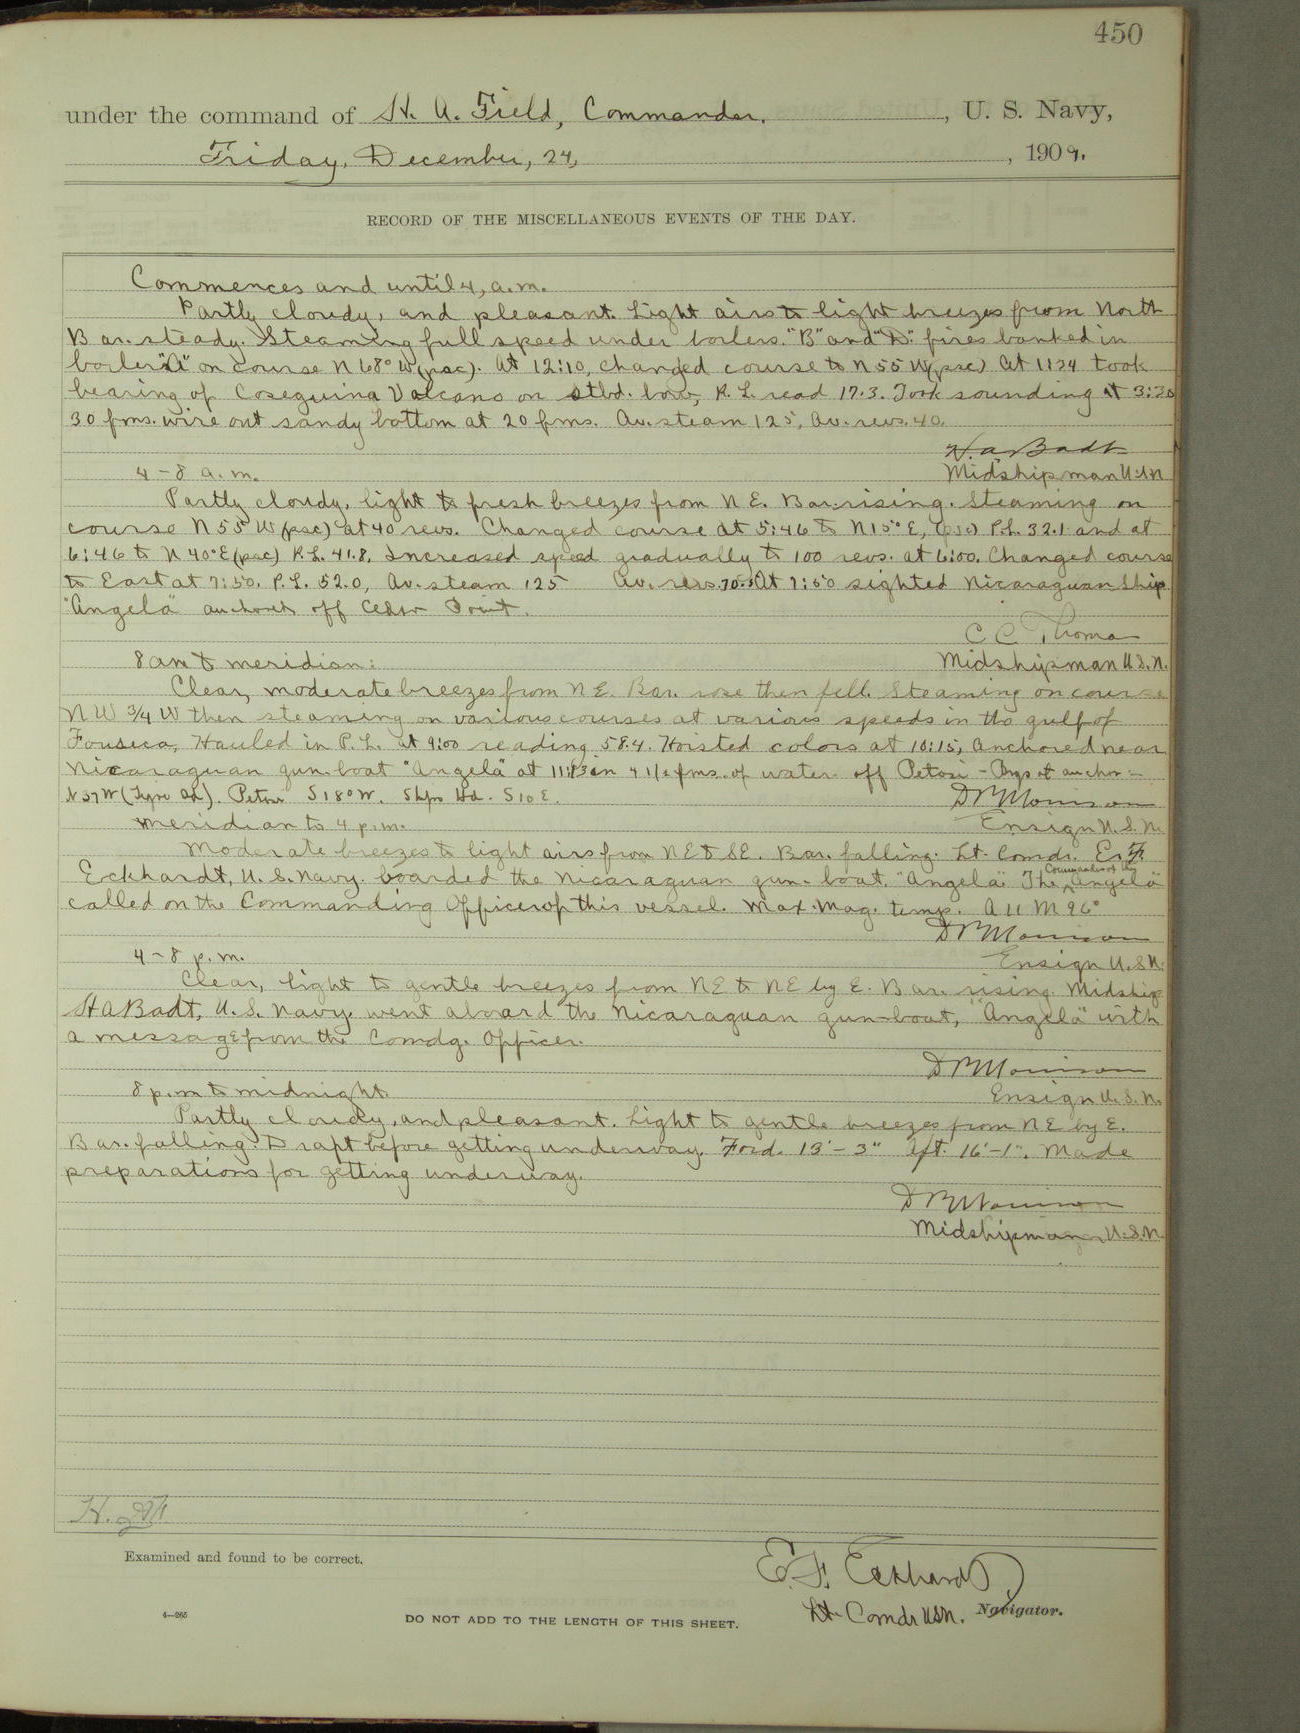 450
under the command of H. A. Field, Commander, , U. S. Navy,
Friday, December, 24, , 1909.
RECORD OF THE MISCELLANEOUS EVENTS OF THE DAY.
Commences and until 4, a.m.
Partly cloudy, and pleasant. Light airs to light breezes from North
Bar. steady. Steaming full speed under boilers. "B" and "D" fires banked in
boiler "A" on course N 68° W (psc). At 12:10, changed course to N 55 W (psc) At 1:24 took
bearing of Coseguina Volcano on stbd. bow, P. L. read 17.3. Took sounding at 3:30
30 fms. wire out sandy bottom at 20 fms. Av. steam 125, Av. revs. 40.
H. A. Badt
Midshipman U.S.N
4-8 a.m.
Partly cloudy, light to fresh breezes from N E. Bar. rising. Steaming on
course N 55 W (psc) at 40 revs. Changed course at 5:46 to N 15° E, (psc) P.L. 32.1 and at
6:46 to N 40° E (psc) P.L. 41.8. Increased speed gradually to 100 revs. at 6:00. Changed course
to East at 7:50. P.L. 52.0, Av. steam 125 Av. revs. 70. At 7:50 sighted Nicaraguan Ship
"Angela" anchored off Cedar Point.
C C Thoma
Midshipman U.S.N.
8 am to meridian:
Clear, moderate breezes from N E. Bar. rose then fell. Steaming on course
N W 3/4 W then steaming on various courses at various speeds in the gulf of
Fonseca, Hauled in P. L. at 9:00 reading 58.4. Hoisted colors at 10:15, anchored near
Nicaraguan gun-boat "Angela" at in 4 1/2 fms. of water off Potosi - Brgs at anchor:-
N 37 W ( ). S 18° W. S 10 E.
D B Morrison
Ensign U.S.N.
Meridian to 4 p.m.
Moderate breezes to light airs from N E to S E. Bar. falling. Lt. Comdr. E. F.
Eckhardt, U. S. Navy. boarded the Nicaraguan gun-boat. "Angela". The Commander of the "Angela"
called on the Commanding Officer of this vessel. Max. Mag. temp. A 11 M 96°
D B Morrison
Ensign U.S.N.
4-8 p.m.
Clear, light to gentle breezes from N E to N E by E. Bar. rising. Midship
H A Badt, U. S. Navy. went aboard the Nicaraguan gun-boat, "Angela" with
a message from the Comdg. Officer.
D B Morrison
Ensign U.S.N.
8 p.m. to midnight.
Partly cloudy, and pleasant. Light to gentle breezes from N E by E.
Bar. falling. Draft before getting underway. Ford. 13'-3" Aft. 16'-1". Made
preparations for getting underway.
D B Morrison
Midshipman U.S.N.
Examined and found to be correct.
E. F. Eckhardt,
Lt. Comdr USN. Navigator.
4—265
DO NOT ADD TO THE LENGTH OF THIS SHEET.